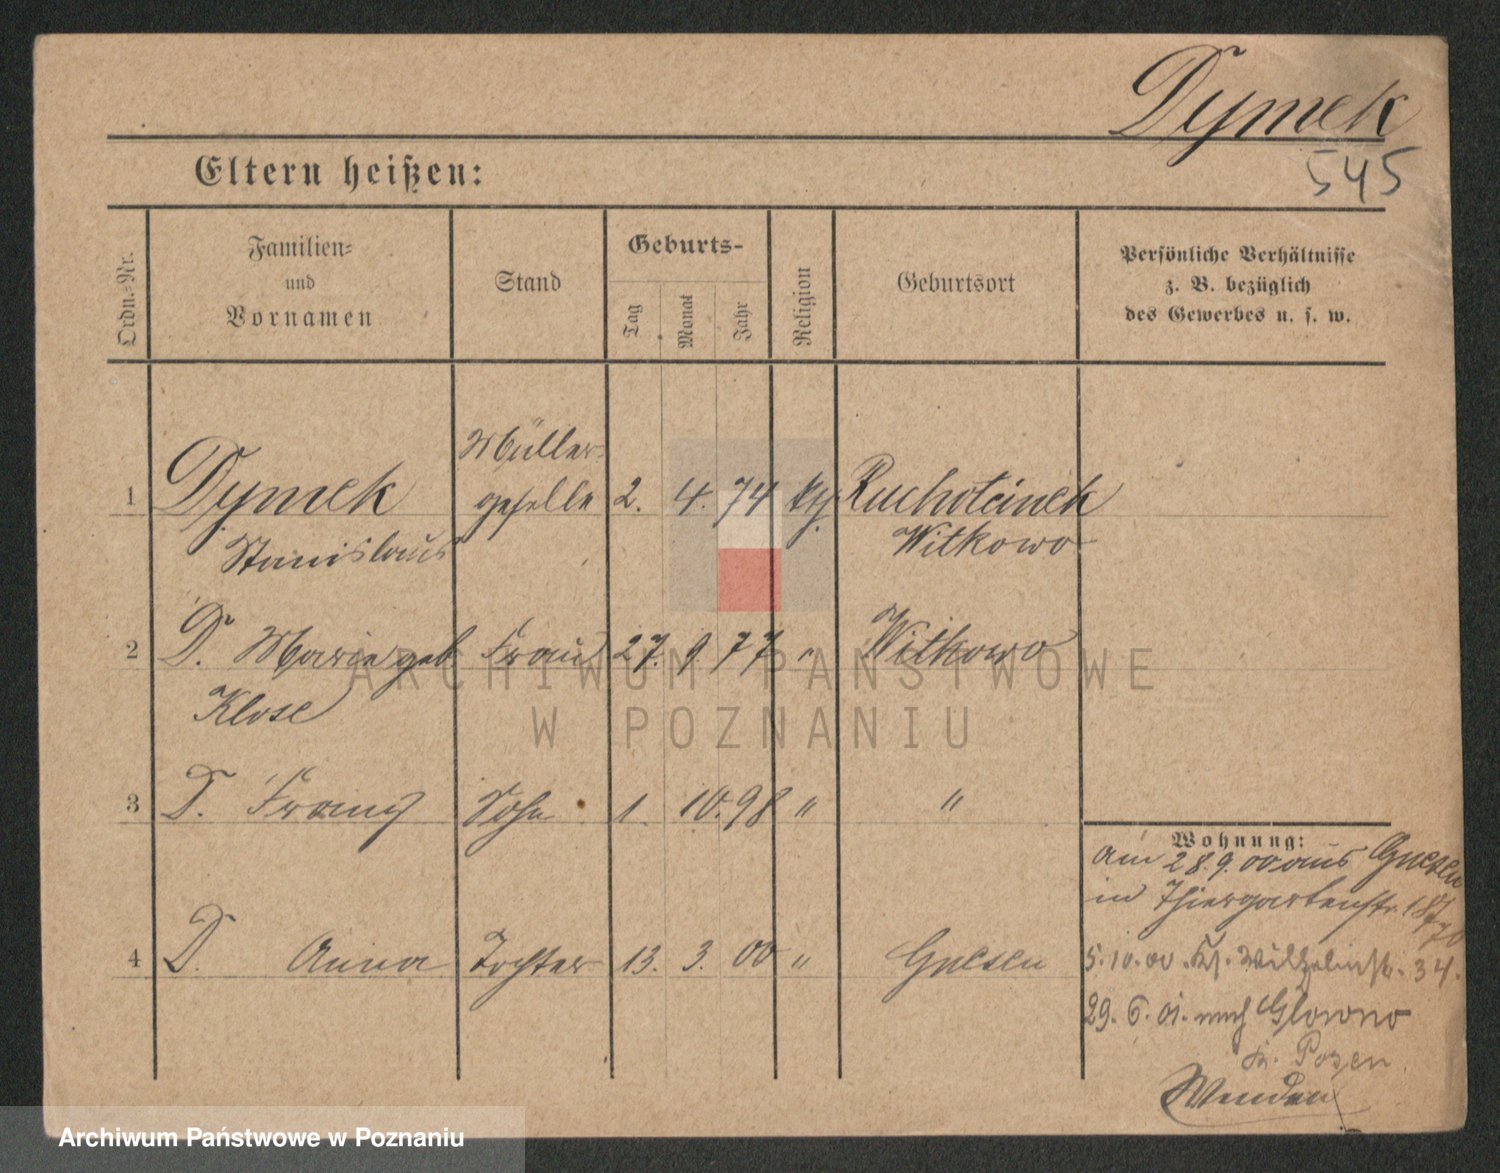 Dymek
545
Eltern heißen:
Ordn.-Nr.
Familien-
und
Vornamen
Stand
Geburts-
Tag
Monat
Jahr
Religion
Geburtsort
Persönliche Verhältnisse
z. B. bezüglich
des Gewerbes u. s. w.
1 Dymek Müller- geselle 2. 4. 74 kh Ruchocinek
Stanislaus Witkowo
2 D. Marie geb. Frau 27. 9. 77 " Witkowo
Klose
3 D. Franz Sohn 1. 10. 98 " "
4 D. Anna Tochter 13. 3. 00 " Gnesen
Wohnung:
am 28.9.00 aus Gnesen
in Thiergartenstr.
5.10.00. Wilhelmstr. 34.
29. 6. 01. nach Glowno
Posen
Wenden
ARCHIWUM PAŃSTWOWE
W POZNANIU
Archiwum Państwowe w Poznaniu